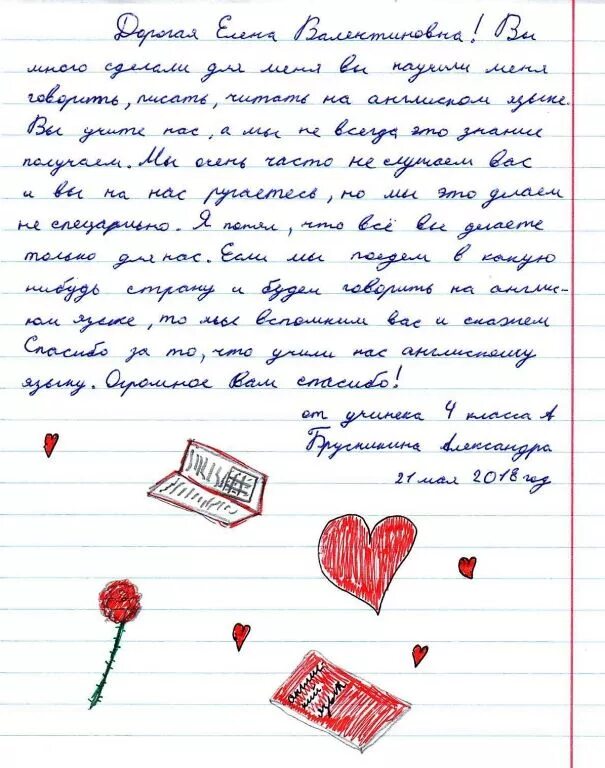 Дорогая Елена Валентиновна! Вы
много сделали для меня вы научили меня
говорить, писать, читать на англиском языке.
Вы учите нас, а мы не всегда это знание
получаем. Мы очень часто не слушаем вас
и вы на нас ругаетесь, но мы это делаем
не спецариьно. Я понял, что всё вы делаете
только для нас. Если мы поедем в какую
нибудь страну и будем говорить на англис-
ком языке, то мы вспомним вас и скажем
Спасибо за то, что учили нас англискому
языку. Огромное Вам спасибо!
от учинека 4 класса А
Брусникина Александра
21 мая 2018 год
англий
ский
язык